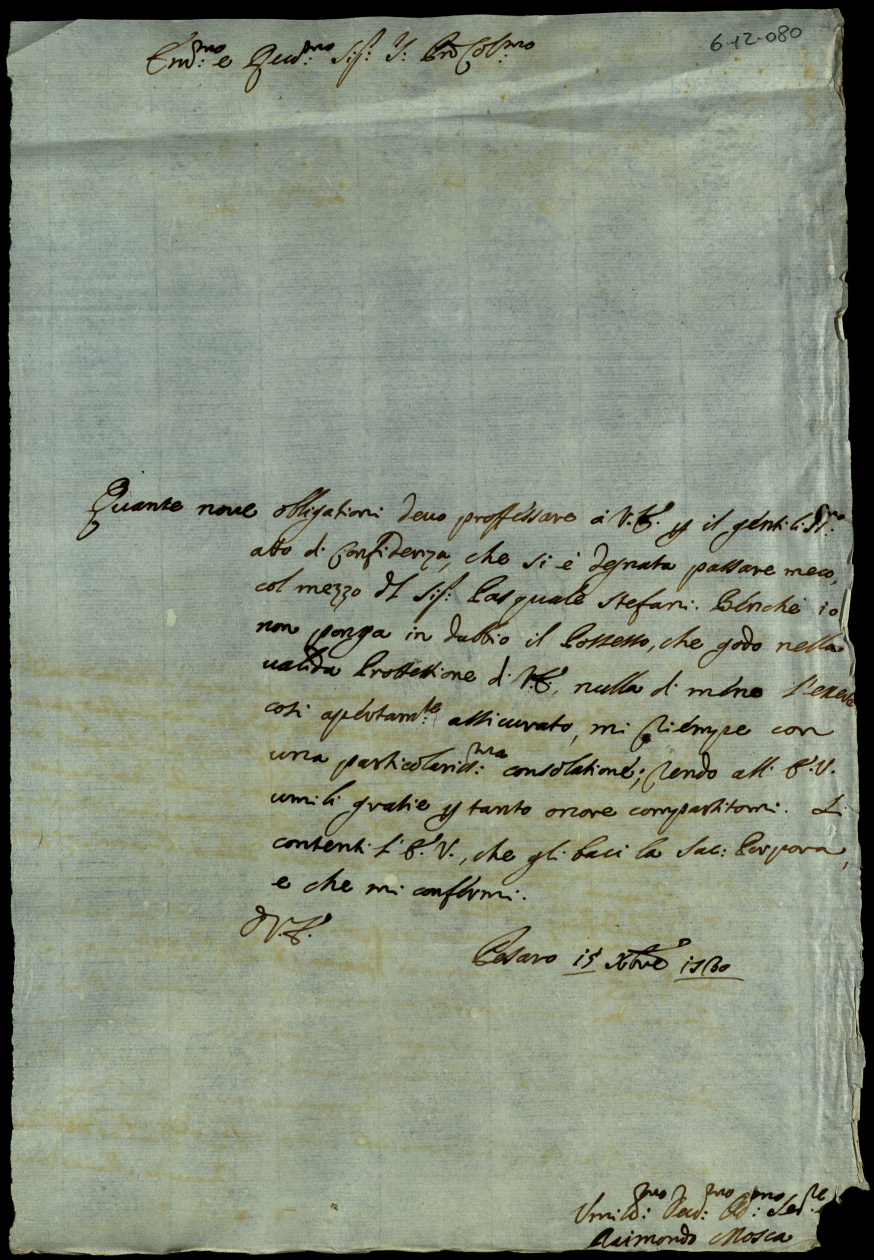 6-12-080
Em.mo e Reu.mo Sig.r P.ron Col.mo
Quante noue obbligationi deuo proffessare à V.E. p il gentiliss.mo
atto di confidenza, che si è degnata passare meco,
col mezzo del Sig.r Pasquale Stefani. Benche io
non ponga in dubbio il Possesso, che godo nella
ualida Protettione di V.E., nulla di meno l'esserne
così apertam.te assicurato, mi riempie con
una particolariss.ma consolatione; rendo all'E.V.
umili gratie p tanto onore compartitomi. Si
contenti l'E.V., che gli baci la Sac: Porpora,
e che mi confermi.
D V.E.
Pesaro 15 Xbre 1730
Umil.mo Deu.mo Ob.mo Ser.re
Raimondo Mosca